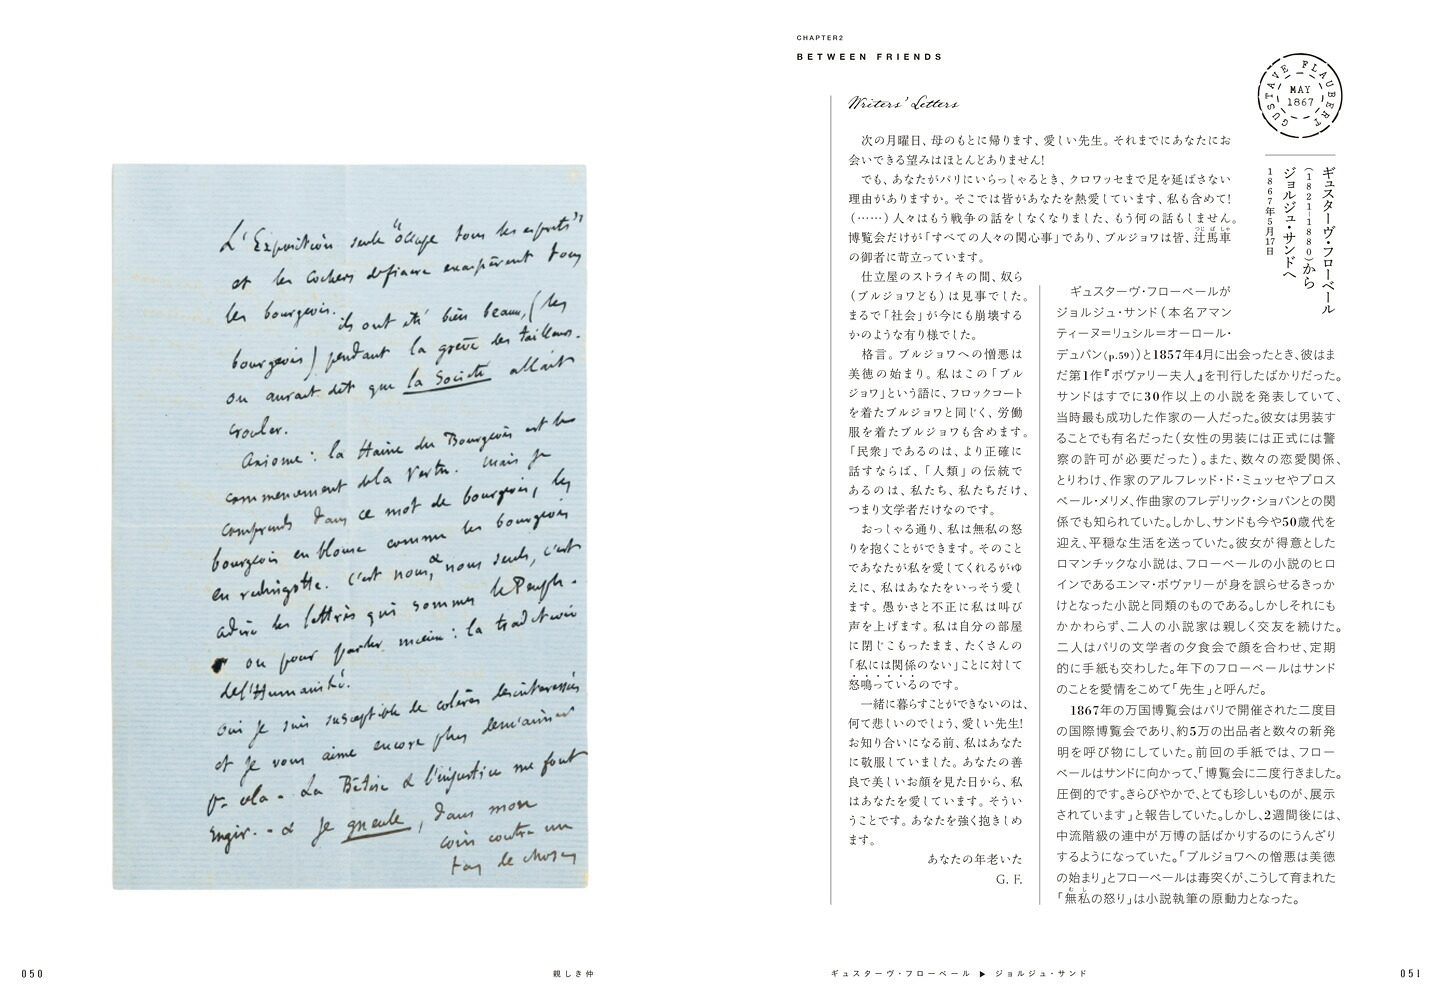 L'Exposition seule "occupe tous les esprits"
et les cochers de fiacre exaspèrent tous
les bourgeois. ils ont été bien beaux, (les
bourgeois) pendant la grève des tailleurs.
on aurait dit que la Société allait
crouler.
Axiome: la Haine du Bourgeois est le
commencement de la Vertu. Mais je
comprends dans ce mot de bourgeois, les
bourgeois en blouse comme les bourgeois
en redingotte. C'est nous, & nous seuls, c'est
à dire les lettrés qui sommes le Peuple -
ou pour parler mieux: la tradition
de l'Humanité.
oui je suis susceptible de colères desinteressées
et je vous aime encore plus de m'aimer
pr cela - La Bêtise & l'injustice me font
rugir. - & je gueule, dans mon
coin contre un
tas de choses
050
親しき仲
CHAPTER2
BETWEEN FRIENDS
Writers' Letters
次の月曜日、母のもとに帰ります、愛しい先生。それまでにあなたにお
会いできる望みはほとんどありません!
でも、あなたがパリにいらっしゃるとき、クロワッセまで足を延ばさない
理由がありますか。そこでは皆があなたを熱愛しています、私も含めて!
(……)人々はもう戦争の話をしなくなりました、もう何の話もしません。
博覧会だけが「すべての人々の関心事」であり、ブルジョワは皆、辻馬車
つじばしゃ
の御者に苛立っています。
仕立屋のストライキの間、奴ら
(ブルジョワども)は見事でした。
まるで「社会」が今にも崩壊する
かのような有り様でした。
格言。ブルジョワへの憎悪は
美徳の始まり。私はこの「ブル
ジョワ」という語に、フロックコート
を着たブルジョワと同じく、労働
服を着たブルジョワも含めます。
「民衆」であるのは、より正確に
話すならば、「人類」の伝統で
あるのは、私たち、私たちだけ、
つまり文学者だけなのです。
おっしゃる通り、私は無私の怒
りを抱くことができます。そのこと
であなたが私を愛してくれるがゆ
えに、私はあなたをいっそう愛し
ます。愚かさと不正に私は叫び
声を上げます。私は自分の部屋
に閉じこもったまま、たくさんの
「私には関係のない」ことに対して
怒鳴っているのです。
一緒に暮らすことができないのは、
何て悲しいのでしょう、愛しい先生!
お知り合いになる前、私はあなた
に敬服していました。あなたの善
良で美しいお顔を見た日から、私
はあなたを愛しています。そうい
うことです。あなたを強く抱きしめ
ます。
あなたの年老いた
G. F.
GUSTAVE FLAUBERT
MAY
1867
ギュスターヴ・フローベール
(1821–1880)から
ジョルジュ・サンドへ
1867年5月17日
ギュスターヴ・フローベールが
ジョルジュ・サンド(本名アマン
ティーヌ=リュシル=オーロール・
デュパン(p.59))と1857年4月に出会ったとき、彼はま
だ第1作『ボヴァリー夫人』を刊行したばかりだった。
サンドはすでに30作以上の小説を発表していて、
当時最も成功した作家の一人だった。彼女は男装す
ることでも有名だった(女性の男装には正式には警
察の許可が必要だった)。また、数々の恋愛関係、
とりわけ、作家のアルフレッド・ド・ミュッセやプロス
ペール・メリメ、作曲家のフレデリック・ショパンとの関
係でも知られていた。しかし、サンドも今や50歳代を
迎え、平穏な生活を送っていた。彼女が得意とした
ロマンチックな小説は、フローベールの小説のヒロ
インであるエンマ・ボヴァリーが身を誤らせるきっか
けとなった小説と同類のものである。しかしそれにも
かかわらず、二人の小説家は親しく交友を続けた。
二人はパリの文学者の夕食会で顔を合わせ、定期
的に手紙も交わした。年下のフローベールはサンド
のことを愛情をこめて「先生」と呼んだ。
1867年の万国博覧会はパリで開催された二度目
の国際博覧会であり、約5万の出品者と数々の新発
明を呼び物にしていた。前回の手紙では、フロー
ベールはサンドに向かって、「博覧会に二度行きました。
圧倒的です。きらびやかで、とても珍しいものが、展示
されています」と報告していた。しかし、2週間後には、
中流階級の連中が万博の話ばかりするのにうんざり
するようになっていた。「ブルジョワへの憎悪は美徳
の始まり」とフローベールは毒突くが、こうして育まれた
「無私の怒り」は小説執筆の原動力となった。
むし
ギュスターヴ・フローベール ▶ ジョルジュ・サンド
051